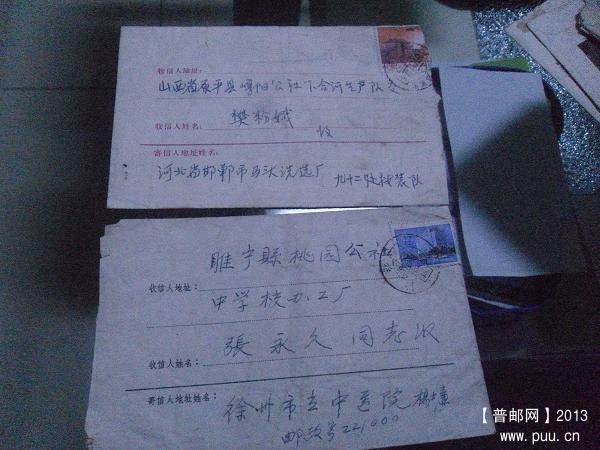 收信人地址:
山西省原平县崞阳公社下合河生产队
收信人姓名:
樊粉娥
收
寄信人地址姓名:
河北省邯郸市马头洗选厂
九十二处
装队
睢宁縣桃园公社
收信人地址:
中学校办工厂
張永久同志收
收信人姓名:
寄信人地址姓名:
徐州市立中医院
邮政号221000
【普邮网】2013
www.puu.cn